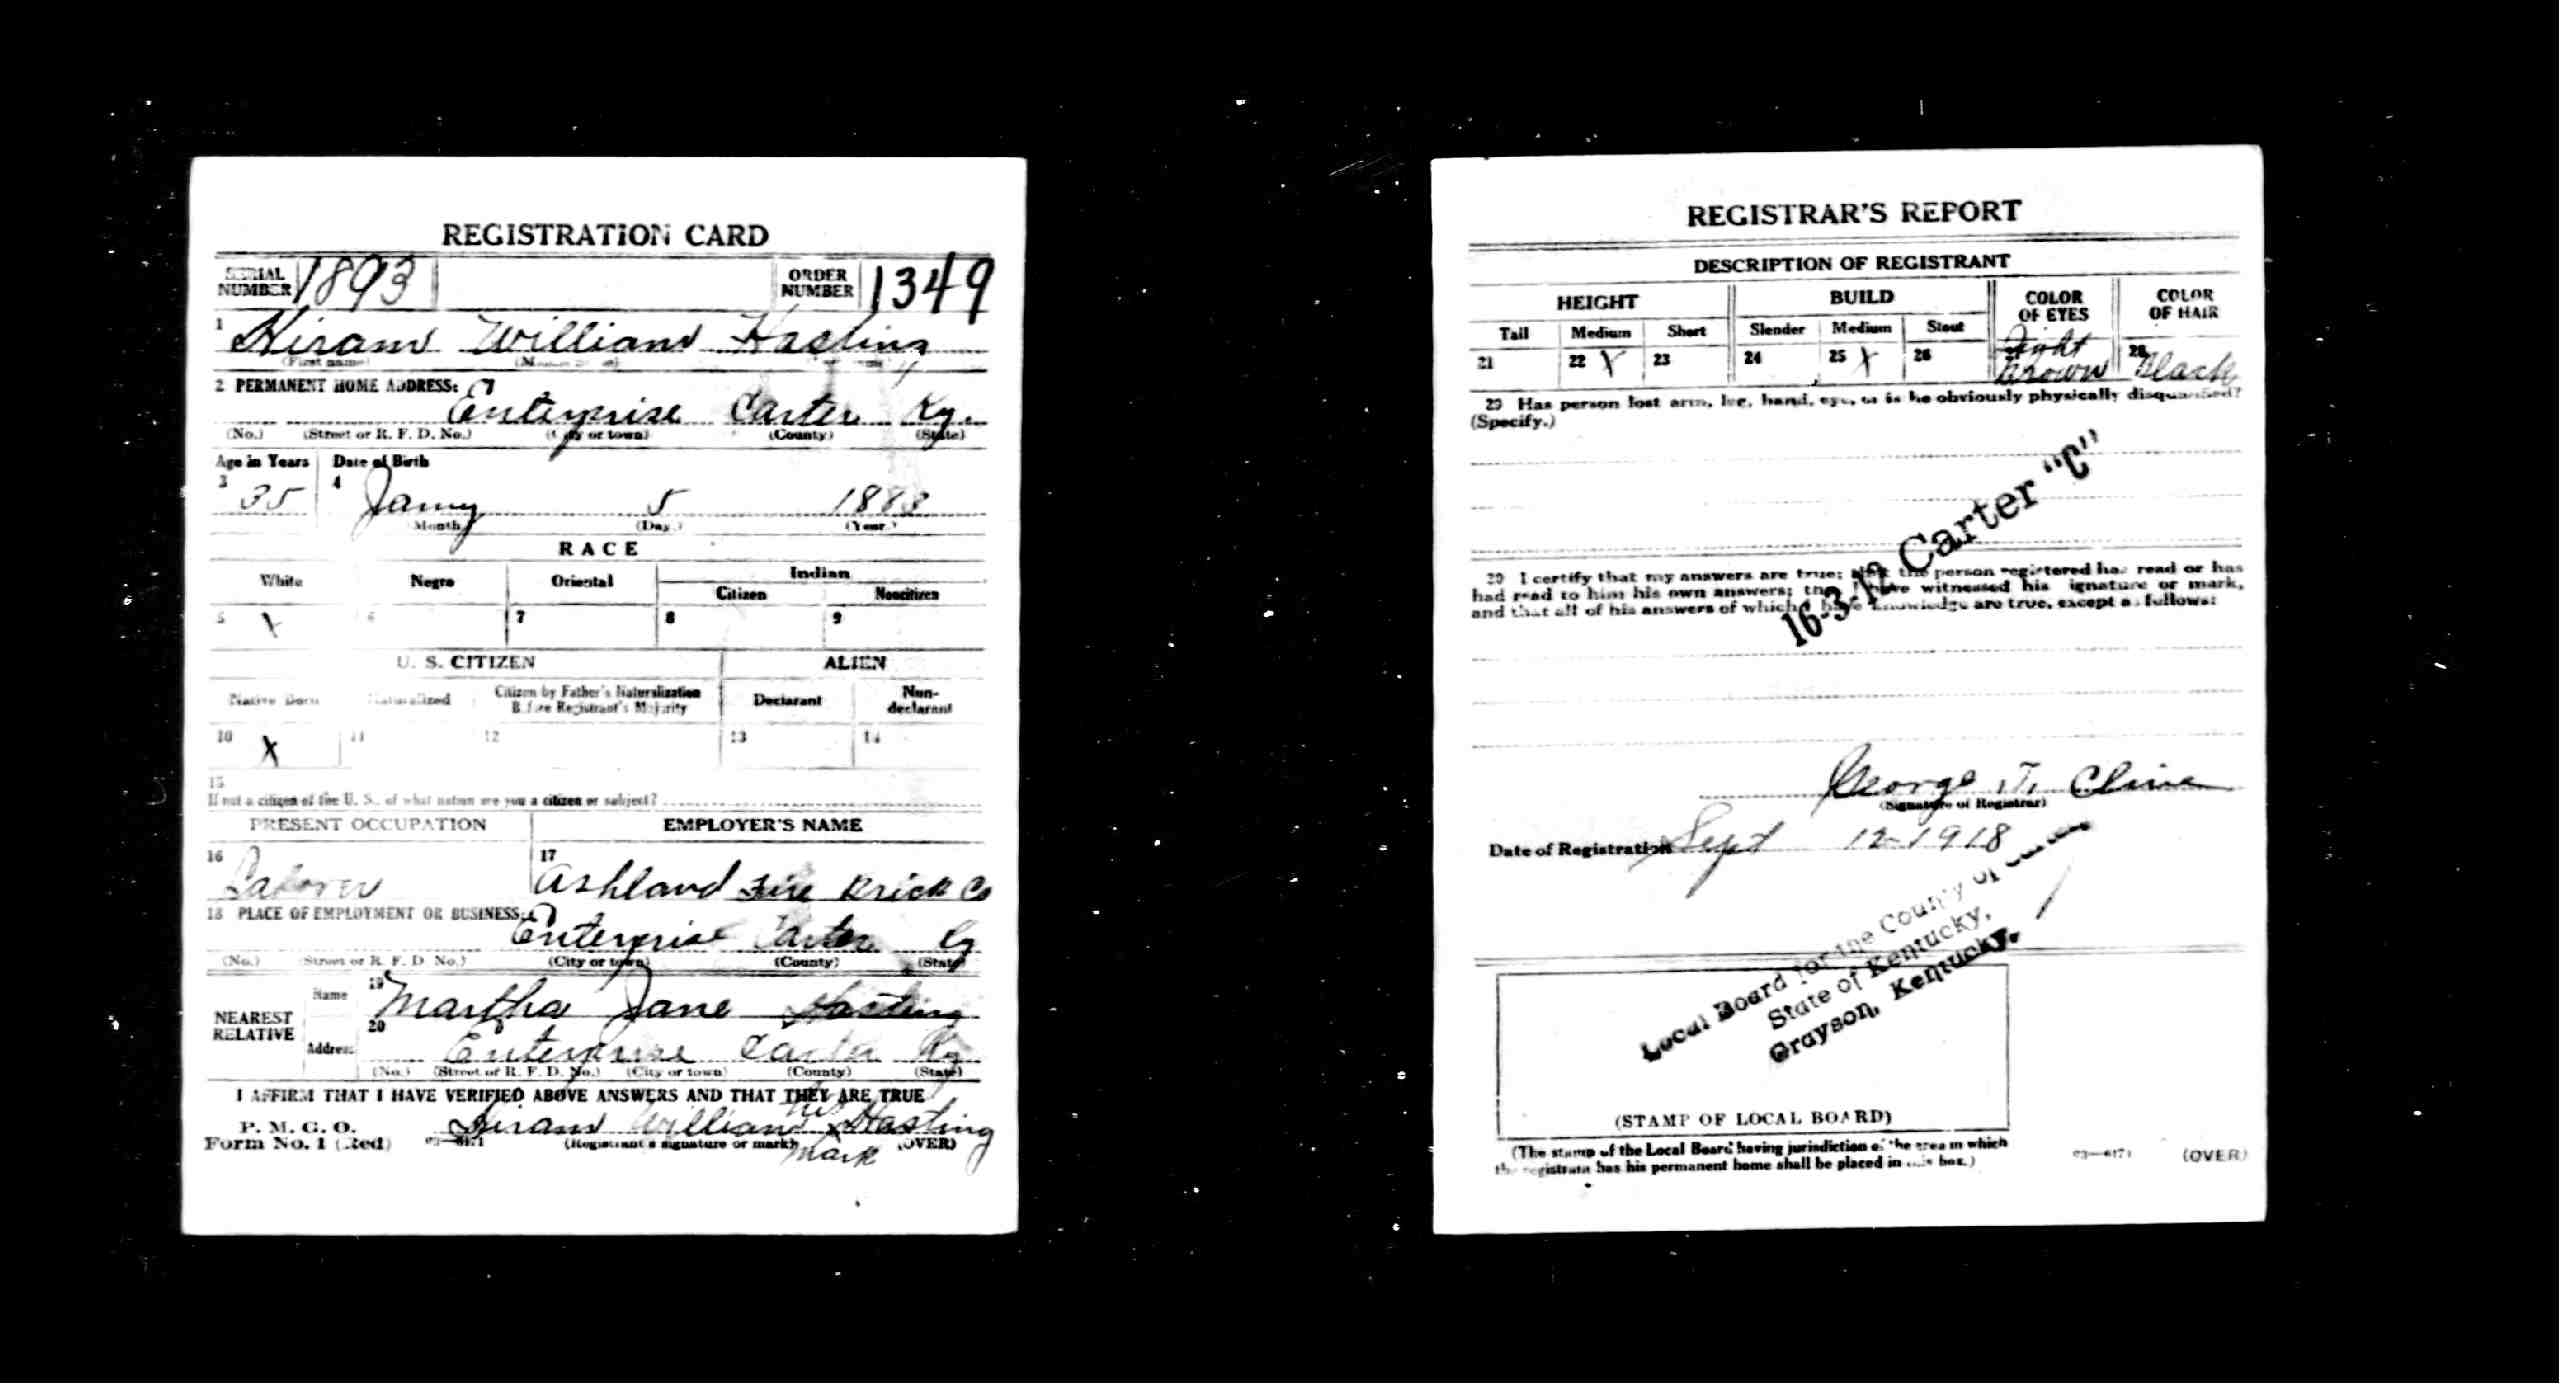 REGISTRATION CARD
SERIAL NUMBER 1893 ORDER NUMBER 1349
1 Hiram William Hasting
(First name)
2 PERMANENT HOME ADDRESS:
Enterprise Carter Ky.
(No.) (Street or R. F. D. No.) (City or town) (County) (State)
Age in Years Date of Birth
3 35 4 Jany 5 1883
(Month) (Day.) (Year.)
RACE
White Negro Oriental Indian
Citizen Noncitizen
5 X 6 7 8 9
U. S. CITIZEN ALIEN
Native Born Naturalized Citizen by Father's Naturalization Before Registrant's Majority Declarant Non-declarant
10 X 11 12 13 14
15
If not a citizen of the U. S., of what nation are you a citizen or subject?
PRESENT OCCUPATION EMPLOYER'S NAME
16 Laborer 17 Ashland Fire Brick Co
18 PLACE OF EMPLOYMENT OR BUSINESS:
Enterprise Carter Ky
(No.) (Street or R. F. D. No.) (City or town) (County) (State)
NEAREST RELATIVE Name 19 Martha Jane Hasting
Address 20 Enterprise Carter Ky
(No.) (Street or R. F. D. No.) (City or town) (County) (State)
I AFFIRM THAT I HAVE VERIFIED ABOVE ANSWERS AND THAT THEY ARE TRUE
P. M. G. O.
Form No. 1 (Red) 03—6171 Hiram William his X mark Hasting
(Registrant's signature or mark) (OVER)
REGISTRAR'S REPORT
DESCRIPTION OF REGISTRANT
HEIGHT BUILD COLOR OF EYES COLOR OF HAIR
Tall Medium Short Slender Medium Stout
21 22 X 23 24 25 X 26 Light Brown 28 Black
29 Has person lost arm, leg, hand, eye, or is he obviously physically disqualified?
(Specify.)
16-3-12 Carter "C"
30 I certify that my answers are true; that the person registered has read or has
had read to him his own answers; that I have witnessed his signature or mark,
and that all of his answers of which I have knowledge are true, except as follows:
George T. Cline
(Signature of Registrar)
Date of Registration Sept 12-1918
Local Board for the County of Carter
State of Kentucky,
Grayson, Kentucky.
(STAMP OF LOCAL BOARD)
(The stamp of the Local Board having jurisdiction of the area in which
the registrant has his permanent home shall be placed in this box.)
03—6171 (OVER)